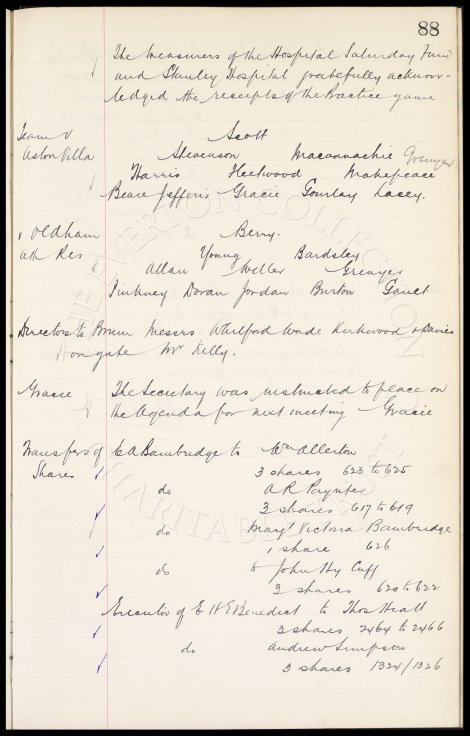 88
The Treasurers of the Hospital Saturday Fund
and Stanley Hospital gratefully acknow-
ledged the receipts of the Practice game
Team v Scott
Aston Villa Stevenson Macconnachie Grenyer
Harris Fleetwood Makepeace
Beare Jefferis Gracie Gourlay Lacey.
v Oldham Berry.
ath Res Young Bardsley
Allan Weller Grenyer
Pinkney Doran Jordan Burton Gault
Directors to Brum Messrs Whitford Wade Kirkwood & Davies
on gate Mr Kelly.
Gracie The Secretary was instructed to place on
the Agenda for next meeting Gracie
Transfers of E A Bambridge to Wm Allerton
Shares 3 shares 623 to 625
do A R Paynter
3 shares 617 to 619
do Margt Victoria Bambridge
1 share 626
do to John Hy Cuff
3 shares 620 to 622
Executor of E H E Benedict to Thos Heatt
3 shares 2464 to 2466
do Andrew Simpson
3 shares 1324/1326
THE EVERTON COLLECTION
CHARITABLE TRUST